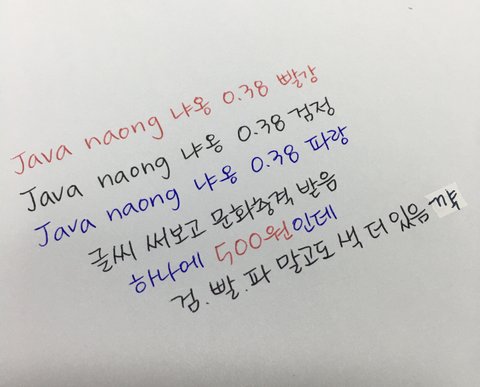 Java naong 냐옹 0.38 빨강
Java naong 냐옹 0.38 검정
Java naong 냐옹 0.38 파랑
글씨 써보고 문화충격 받음
하나에 500원인데
검.빨.파 말고도 색 더 있음 꺅